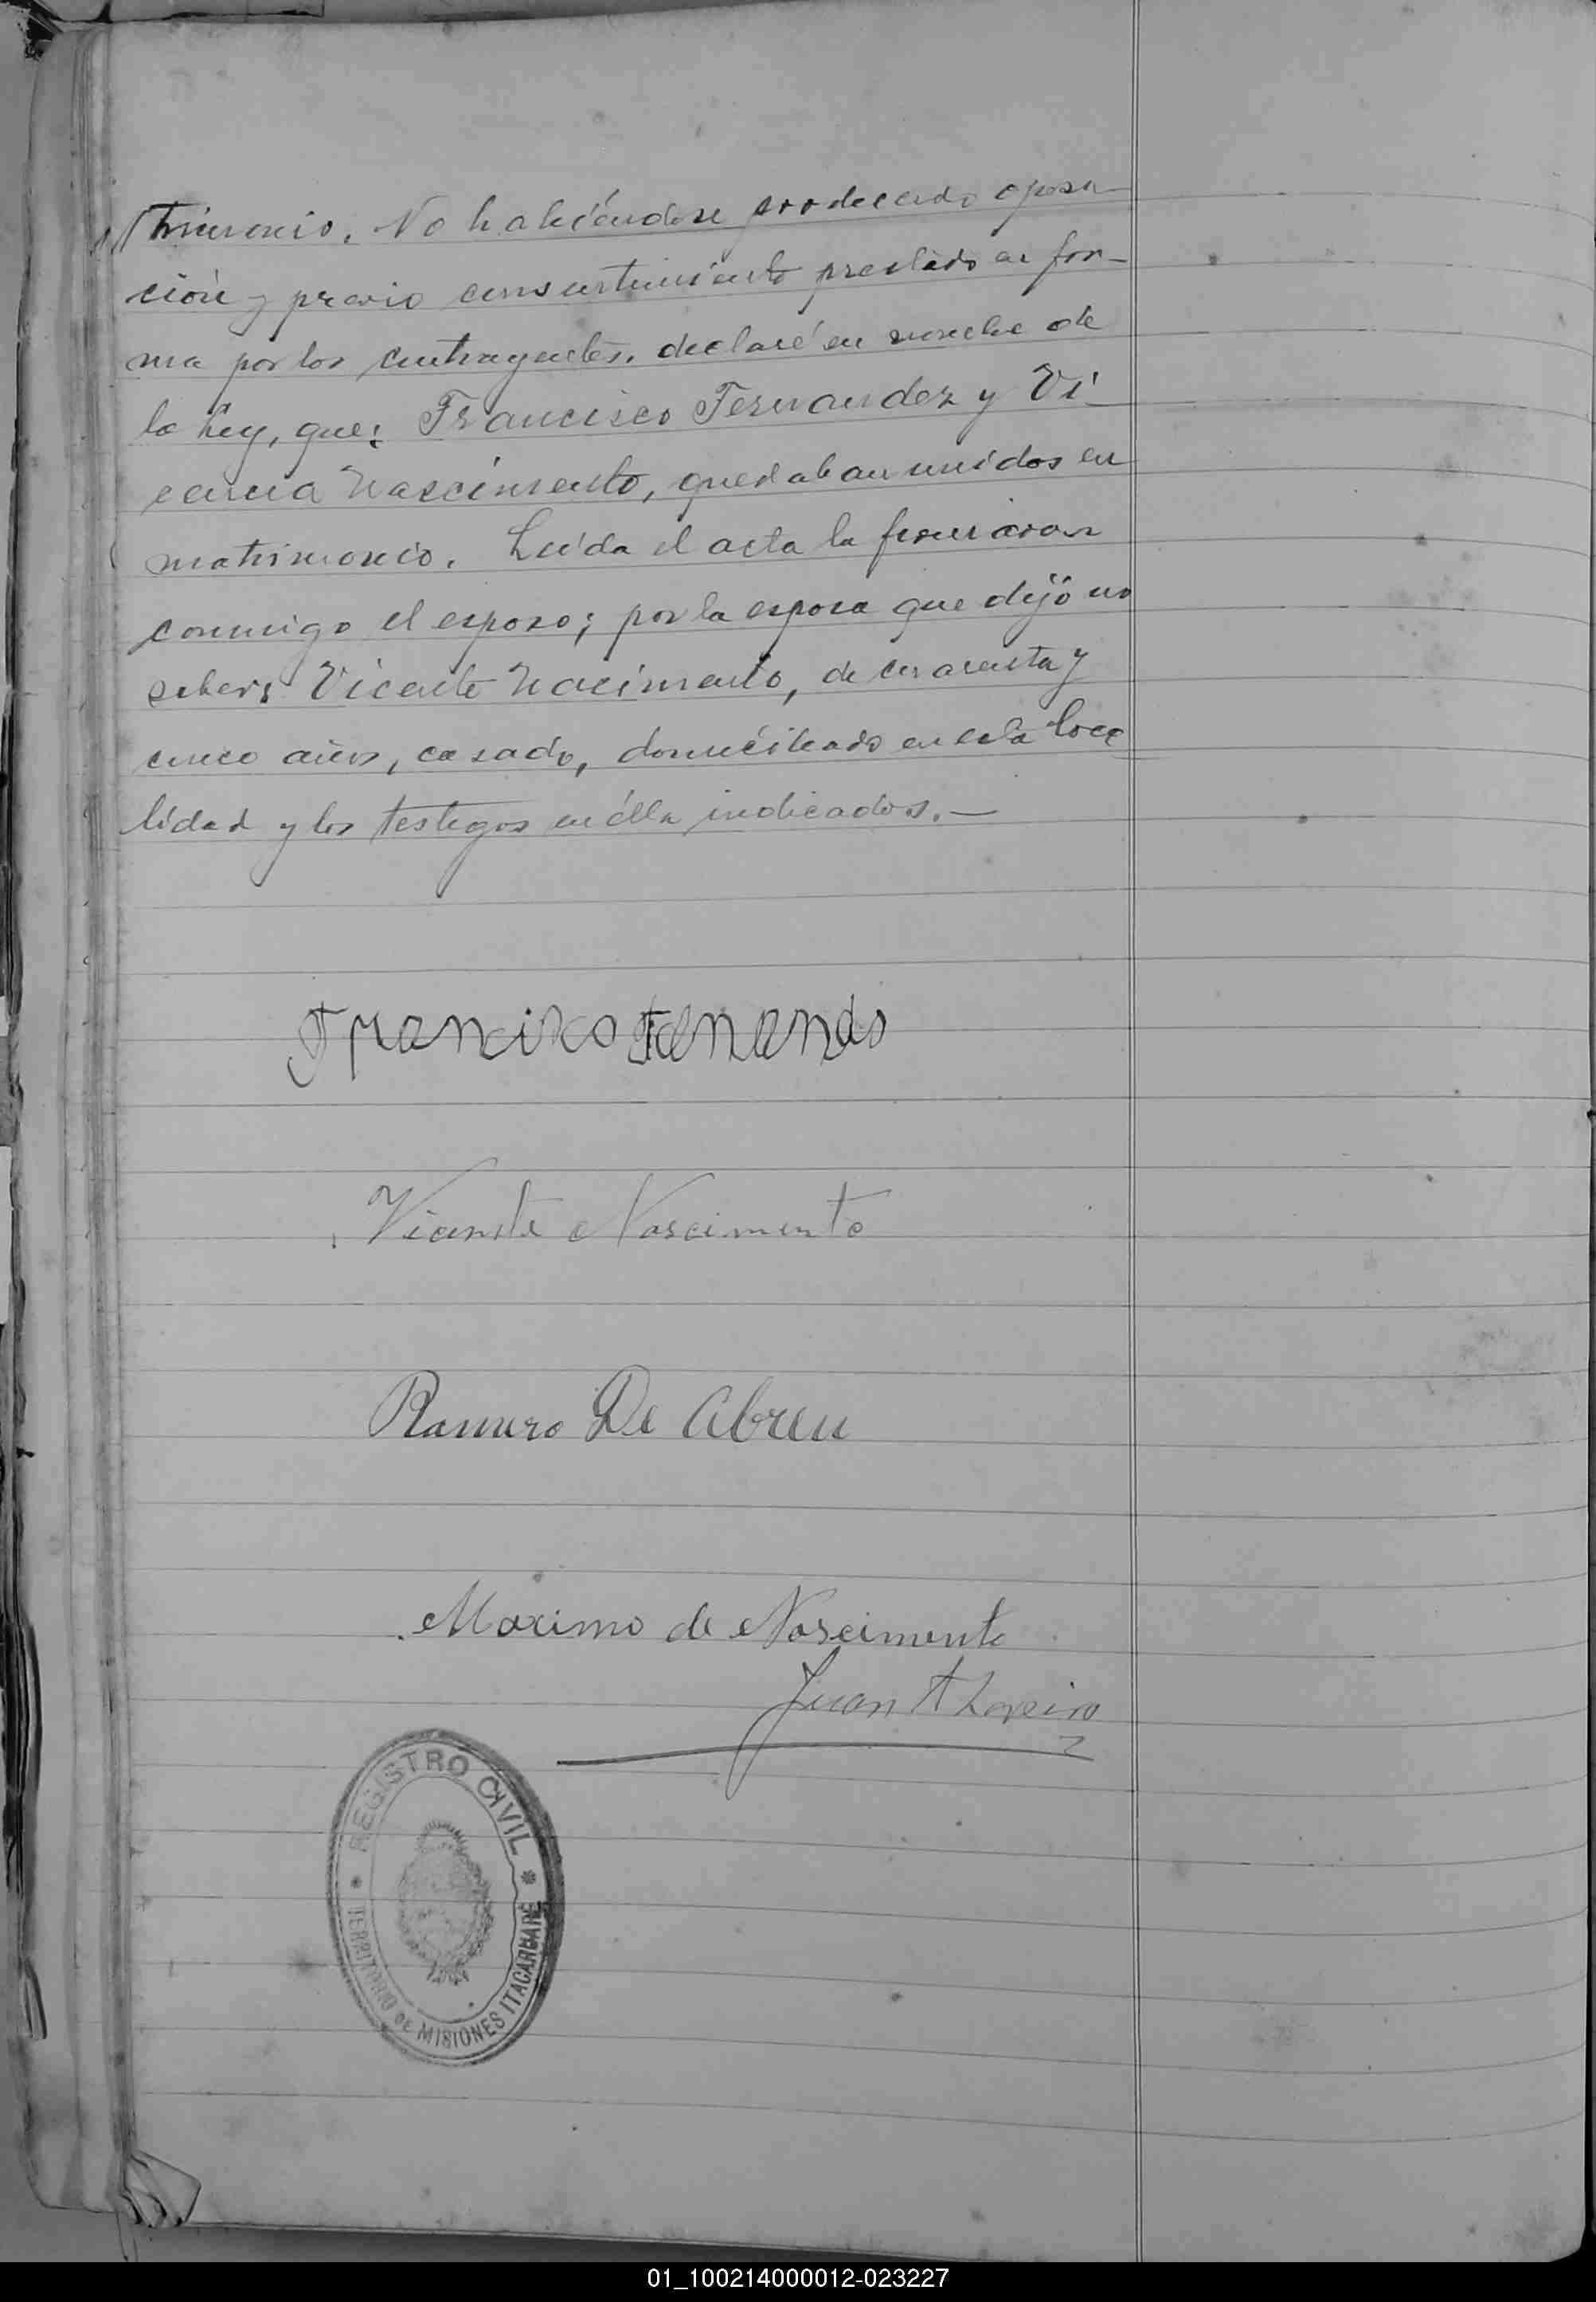 trimonio. No habiéndose producido oposi-
ción y previo consentimiento prestado en for-
ma por los contrayentes, declaré en nombre de
la Ley, que: Francisco Fernandez y Vi-
cencia Nascimento, quedaban unidos en
matrimonio. Leída el acta la firmaron
conmigo el esposo; por la esposa que dijo no
saber: Vicente Nacimento, de cuarenta y
cinco años, casado, domiciliado en esta loca
lidad y los testigos en élla indicados.—
Francisco Fernandes
Vicente Nascimento
Ramiro De Abreu
Maximo de Nascimento
Juan A
REGISTRO CIVIL
TERRITORIO DE MISIONES ITACARUARE
01_100214000012-023227